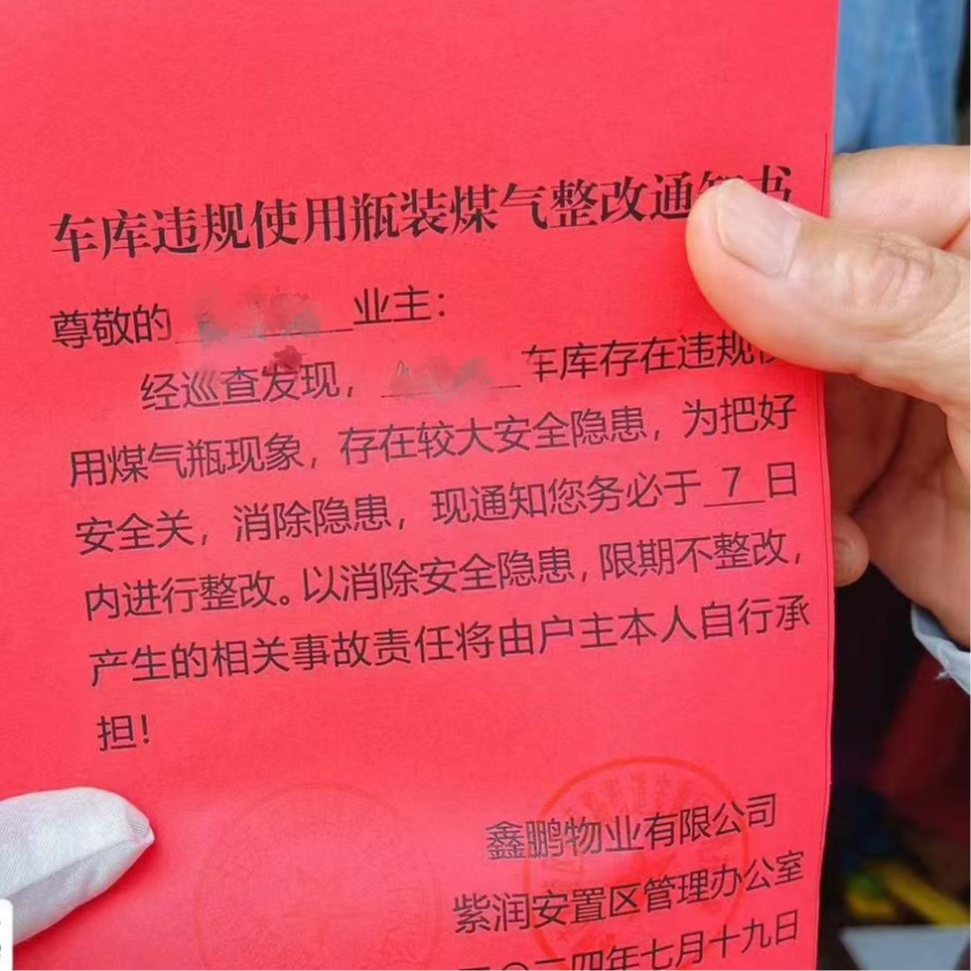 车库违规使用瓶装煤气整改通知书
尊敬的 业主：
经巡查发现， 车库存在违规使
用煤气瓶现象，存在较大安全隐患，为把好
安全关，消除隐患，现通知您务必于 7 日
内进行整改。以消除安全隐患，限期不整改，
产生的相关事故责任将由户主本人自行承
担！
鑫鹏物业有限公司
紫润安置区管理办公室
二〇二四年七月十九日